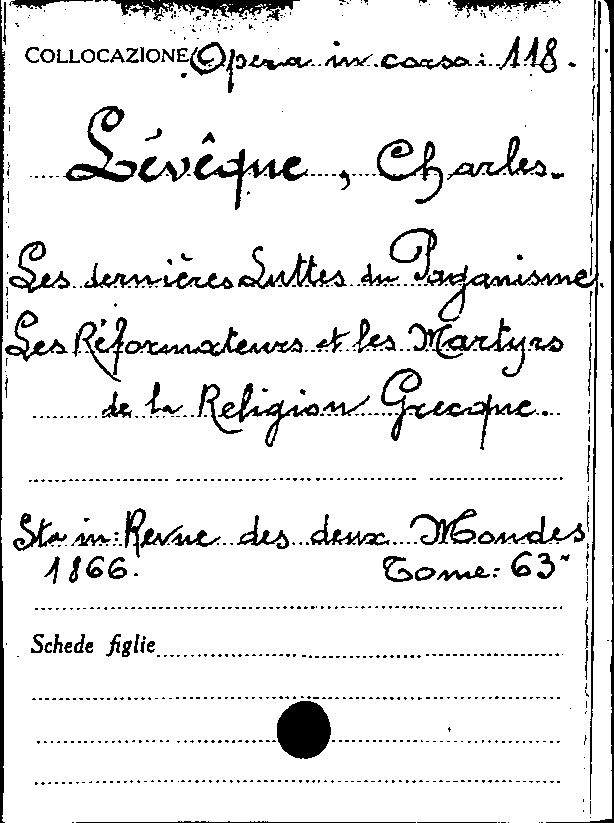 COLLOCAZIONE Opera in corso: 118.
Lévêque, Charles.
Les dernières Luttes du Paganisme.
Les Réformateurs et les Martyrs
de la Religion Grecque.
Sta in: Revue des deux Mondes
1866. Tome: 63
Schede figlie